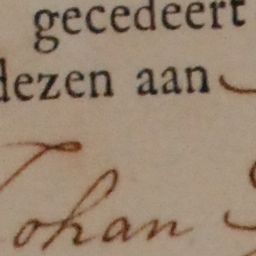 gecedeert
dezen aan
Johan